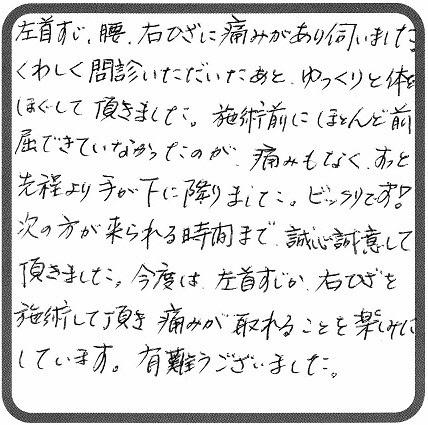 左首すじ、腰、右ひざに痛みがあり伺いました
くわしく問診いただいたあと、ゆっくりと体を
ほぐして頂きました。施術前にほとんど前
屈できていなかったのが、痛みもなく、すっと
先程より手が下に降りました。ビックリです!
次の方が来られる時間まで、誠心誠意して
頂きました。今度は、左首すじか、右ひざを
施術して頂き 痛みが取れることを楽しみに
しています。有難うございました。